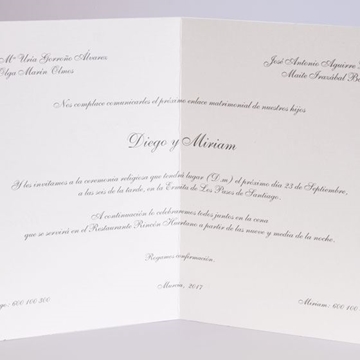 Mª Uría Gorroño Álvarez
Olga Marín Olmos
José Antonio Aguirre
Maite Iraxábal
Nos complace comunicarles el próximo enlace matrimonial de nuestros hijos
Diego y Miriam
Y les invitamos a la ceremonia religiosa que tendrá lugar (D.m) el próximo día 23 de Septiembre,
a las seis de la tarde, en la Ermita de Los Pasos de Santiago.
A continuación lo celebraremos todos juntos en la cena
que se servirá en el Restaurante Rincón Huertano a partir de las nueve y media de la noche.
Rogamos confirmación.
Murcia, 2017
600 100 200
Miriam: 600 100